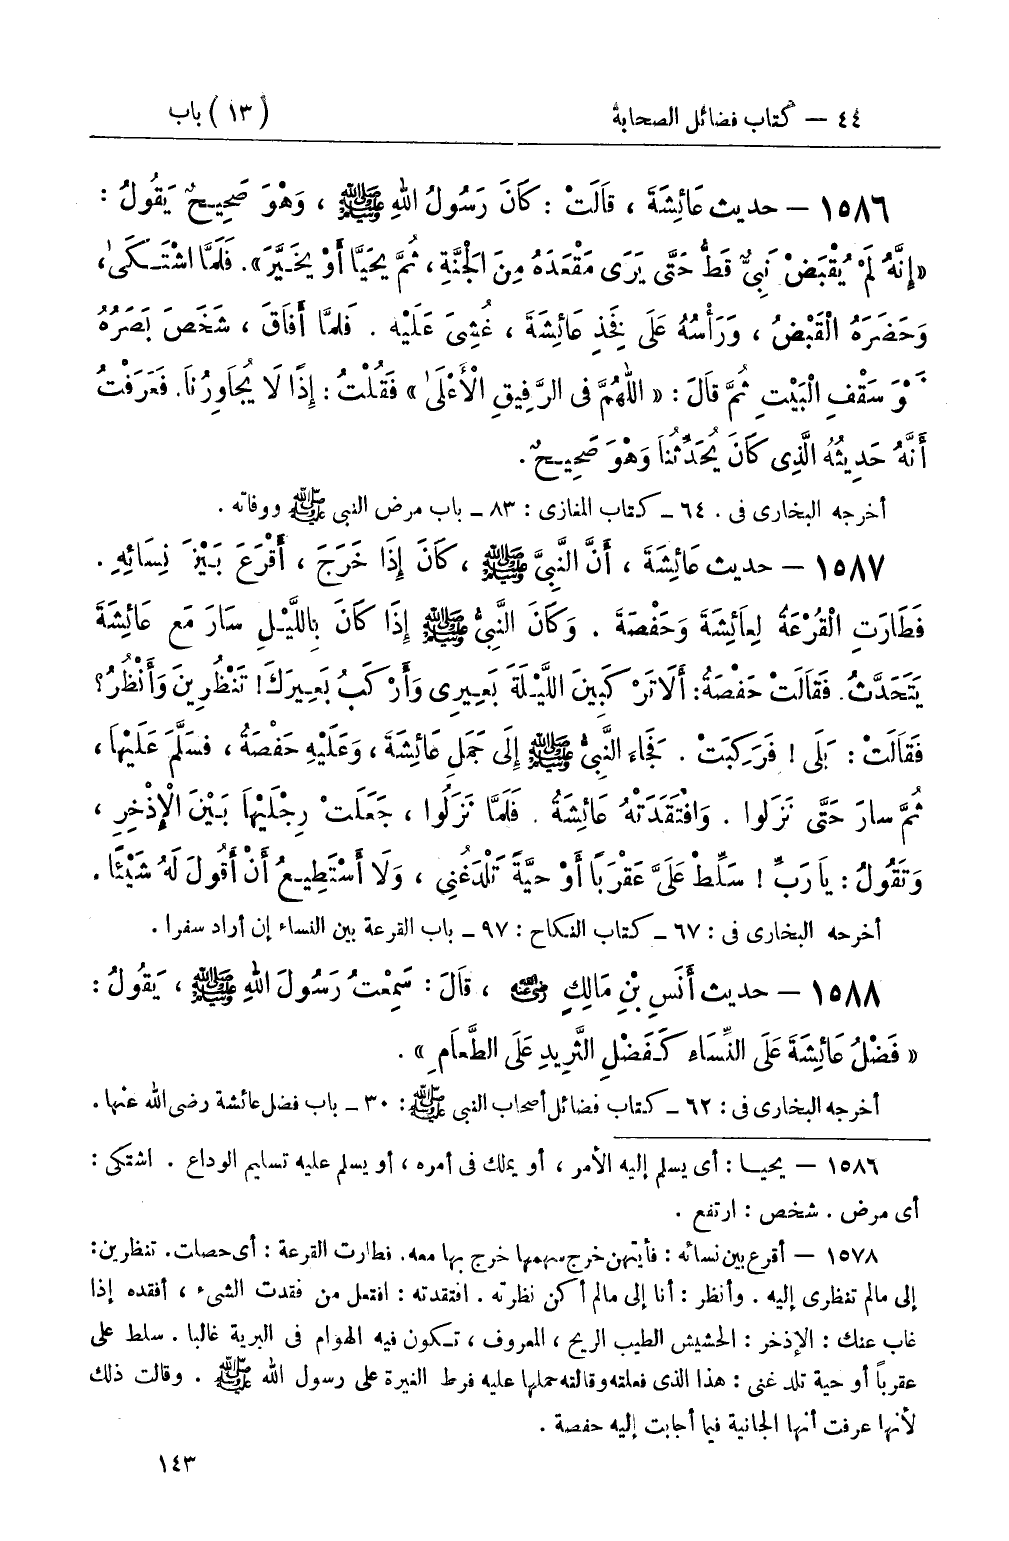 ٤٤ — كتاب فضائل الصحابة (١٣) باب
١٥٨٦ — حديث عَائِشَةَ ، قَالَتْ : كَانَ رَسُولُ اللهِ ﷺ ، وَهْوَ صَحِيحٌ يَقُولُ :
«إِنَّهُ لَمْ يُقْبَضْ نَبِيٌّ قَطُّ حَتَّى يَرَى مَقْعَدَهُ مِنَ الْجَنَّةِ ، ثُمَّ يُحَيَّا أَوْ يُخَيَّرَ». فَلَمَّا اشْتَكَىٰ،
وَحَضَرَهُ الْقَبْضُ ، وَرَأْسُهُ عَلَى فَخِذِ عَائِشَةَ ، غُشِيَ عَلَيْهِ . فَلَمَّا أَفَاقَ ، شَخَصَ بَصَرُهُ
نَحْوَ سَقْفِ الْبَيْتِ ثُمَّ قَالَ : « اللّٰهُمَّ فِى الرَّفِيقِ الْأَعْلَىٰ » فَقُلْتُ : إِذًا لَا يُجَاوِرُنَا. فَعَرَفْتُ
أَنَّهُ حَدِيثُهُ الَّذِى كَانَ يُحَدِّثُنَا وَهْوَ صَحِيحٌ.
أخرجه البخارى فى . ٦٤ ـ كتاب المغازى : ٨٣ ـ باب مرض النبى ﷺ ووفاته .
١٥٨٧ — حديث عَائِشَةَ ، أَنَّ النَّبِيَّ ﷺ ، كَانَ إِذَا خَرَجَ ، أَقْرَعَ بَيْنَ نِسَائِهِ .
فَطَارَتِ الْقُرْعَةُ لِعَائِشَةَ وَحَفْصَةَ . وَكَانَ النَّبِيُّ ﷺ إِذَا كَانَ بِاللَّيْلِ سَارَ مَعَ عَائِشَةَ
يَتَحَدَّثُ. فَقَالَتْ حَفْصَةُ: أَلَا تَرْكَبِينَ اللَّيْلَةَ بَعِيرِى وَأَرْكَبُ بَعِيرَكِ! تَنْظُرِينَ وَأَنْظُرُ؟
فَقَالَتْ : بَلَى ! فَرَكِبَتْ . فَجَاءَ النَّبِيُّ ﷺ إِلَى جَمَلِ عَائِشَةَ ، وَعَلَيْهِ حَفْصَةُ ، فَسَلَّمَ عَلَيْهَا ،
ثُمَّ سَارَ حَتَّى نَزَلُوا . وَافْتَقَدَتْهُ عَائِشَةُ . فَلَمَّا نَزَلُوا ، جَعَلَتْ رِجْلَيْهَا بَيْنَ الْإِذْخِرِ ،
وَتَقُولُ : يَا رَبِّ ! سَلِّطْ عَلَيَّ عَقْرَبًا أَوْ حَيَّةً تَلْدَغُنِي ، وَلَا أَسْتَطِيعُ أَنْ أَقُولَ لَهُ شَيْئًا .
أخرجه البخارى فى : ٦٧ ـ كتاب النكاح : ٩٧ ـ باب القرعة بين النساء إن أراد سفرا .
١٥٨٨ — حديث أَنَسِ بْنِ مَالِكٍ رضي الله عنه ، قَالَ : سَمِعْتُ رَسُولَ اللهِ ﷺ ، يَقُولُ :
« فَضْلُ عَائِشَةَ عَلَى النِّسَاءِ كَفَضْلِ الثَّرِيدِ عَلَى الطَّعَامِ » .
أخرجه البخارى فى : ٦٢ ـ كتاب فضائل أصحاب النبى ﷺ: ٣٠ ـ باب فضل عائشة رضى الله عنها .
١٥٨٦ — يحيـا : أى يسلم إليه الأمر ، أو يملك فى أمره ، أو يسلم عليه تسليم الوداع . اشتكى :
أى مرض . شخص : ارتفع .
١٥٧٨ — أقرع بين نسائه : فأيتهن خرج سهمها خرج بها معه. فطارت القرعة : أى حصلت. تنظرين:
إلى مالم تنظرى إليه . وأنظر : أنا إلى مالم أكن نظرته . افتقدته : افتعل من فقدت الشىء ، أفقده إذا
غاب عنك : الإذخر : الحشيش الطيب الريح ، المعروف ، تكون فيه الهوام فى البرية غالبا . سلط على
عقرباً أو حية تلدغنى : هذا الذى فعلته وقالته حملها عليه فرط الغيرة على رسول الله ﷺ . وقالت ذلك
لأنها عرفت أنها الجانية فيما أجابت إليه حفصة .
١٤٣